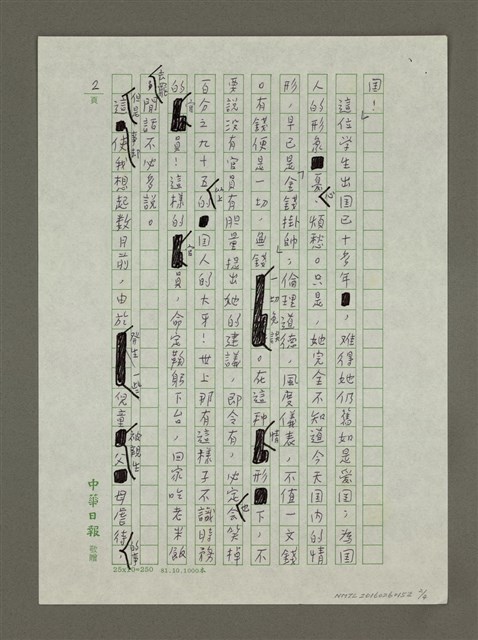 国！」
這位学生出国已十多年，难得她仍舊如是爱国；為国
人的形象憂心煩愁。只是，她完全不知道今天国内的情
形，早已是「金錢掛帥」；倫理道德，風度儀表，不值一文錢
。有錢便是一切，無錢一切免談。在這种情形下，不
要說没有官員有胆量提出她的建議，即令有，必定也会笑掉
百分之九十五以上的国人的大牙！世上那有這樣子不識時務
的官員！這樣的官員，命定鞠躬下台，回家吃老米飯
去罷！閒話不必多說。
但是這事却使我想起数月前，由於發生一些兒童被親生父母虐待的事
2
頁
中華日報 敬贈
25x10=250 81.10.1000本
NMTL20160264152 2/4